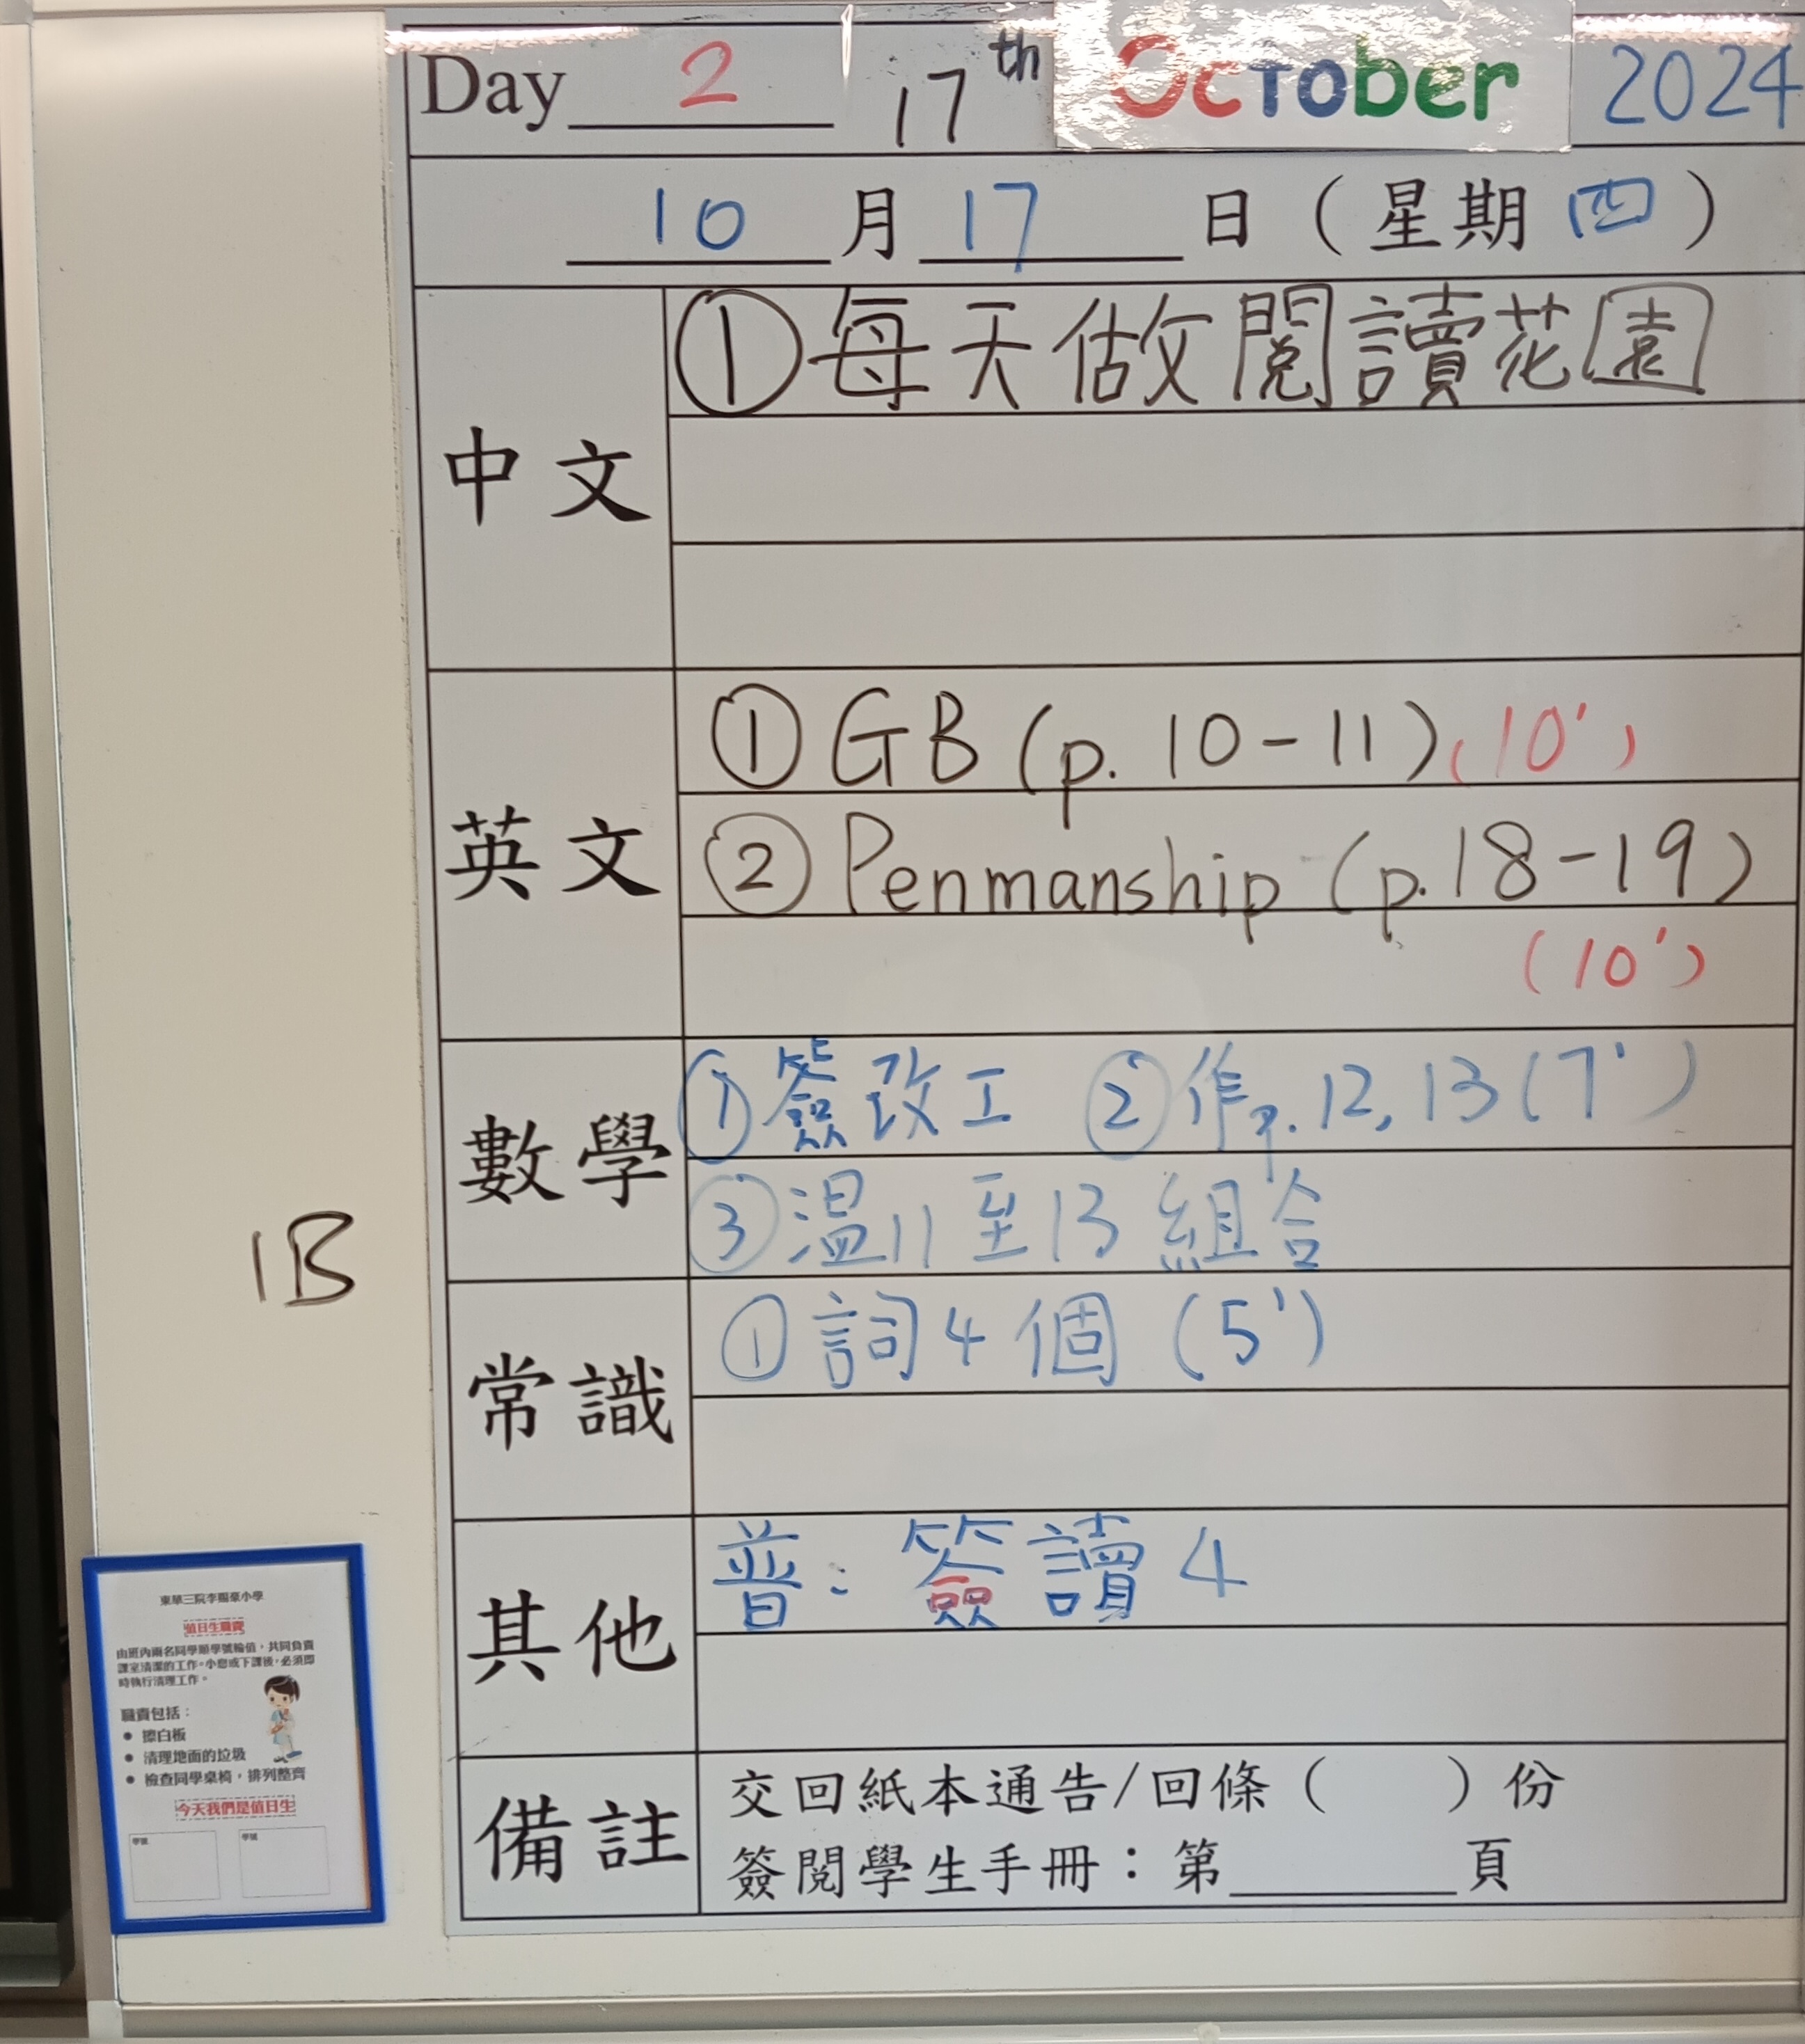 Day 2 17th October 2024
10月17日（星期四）
中文
①每天做閱讀花園
英文
①GB (p. 10-11) (10')
②Penmanship (p.18-19)
(10')
數學
①簽改工 ②作p. 12, 13 (7')
③温11至13組合
常識
①詞4個 (5')
其他
普：簽讀4
備註
交回紙本通告/回條（ ）份
簽閱學生手冊：第 頁
1B
東華三院李賜豪小學
值日生職責
由班內兩名同學順學號輪值，共同負責
課室清潔的工作。小息或下課後，必須即
時執行清理工作。
職責包括：
● 擦白板
● 清理地面的垃圾
● 檢查同學桌椅，排列整齊
今天我們是值日生
學號 學號